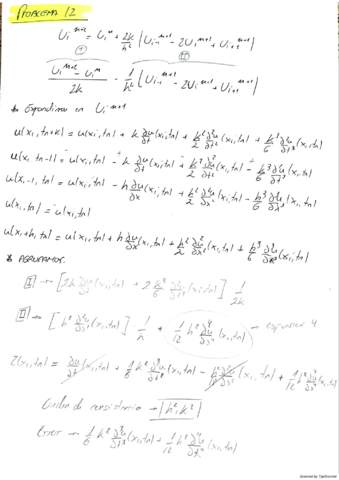 PROBLEMA 12
U_i^{n+2} = U_i^n + 2k/h² [U_{i-1}^{n+1} - 2U_i^{n+1} + U_{i+1}^{n+1}]
I II
(U_i^{n+2} - U_i^n)/2k = 1/h² [U_{i-1}^{n+1} - 2U_i^{n+1} + U_{i+1}^{n+1}]
* Expandimos en U_i^{n+1}
u(x_i, t_n+k) = u(x_i, t_n) + k ∂u/∂t (x_i, t_n) + k²/2 ∂²u/∂t² (x_i, t_n) + k³/6 ∂³u/∂t³ (x_i, t_n)
u(x_i, t_n-1) = u(x_i, t_n) - k ∂u/∂t (x_i, t_n) + k²/2 ∂²u/∂t² (x_i, t_n) - k³/6 ∂³u/∂t³ (x_i, t_n)
u(x_i-1, t_n) = u(x_i, t_n) - h ∂u/∂x (x_i, t_n) + h²/2 ∂²u/∂x² (x_i, t_n) - h³/6 ∂³u/∂x³ (x_i, t_n)
u(x_i, t_n) = u(x_i, t_n)
u(x_i+h, t_n) = u(x_i, t_n) + h ∂u/∂x (x_i, t_n) + h²/2 ∂²u/∂x² (x_i, t_n) + h³/6 ∂³u/∂x³ (x_i, t_n)
* AGRUPAMOS.
I → [2k ∂u/∂t (x_i, t_n) + 2 k³/6 ∂³u/∂t³ (x_i, t_n)] 1/2k
II → [h² ∂²u/∂x² (x_i, t_n)] 1/h + 1/12 h² ∂⁴u/∂x⁴ (x_i, t_n) → expansion 4
Z(x_i, t_n) = ∂u/∂t (x_i, t_n) + 1/6 k² ∂³u/∂t³ (x_i, t_n) - h² ∂²u/∂x² (x_i, t_n) + 1/12 h² ∂⁴u/∂x⁴ (x_i, t_n)
Orden de consistencia → h², k²
Error → 1/6 k² ∂³u/∂t³ (x_i, t_n) + 1/12 h² ∂⁴u/∂x⁴ (x_i, t_n)
Scanned by TapScanner